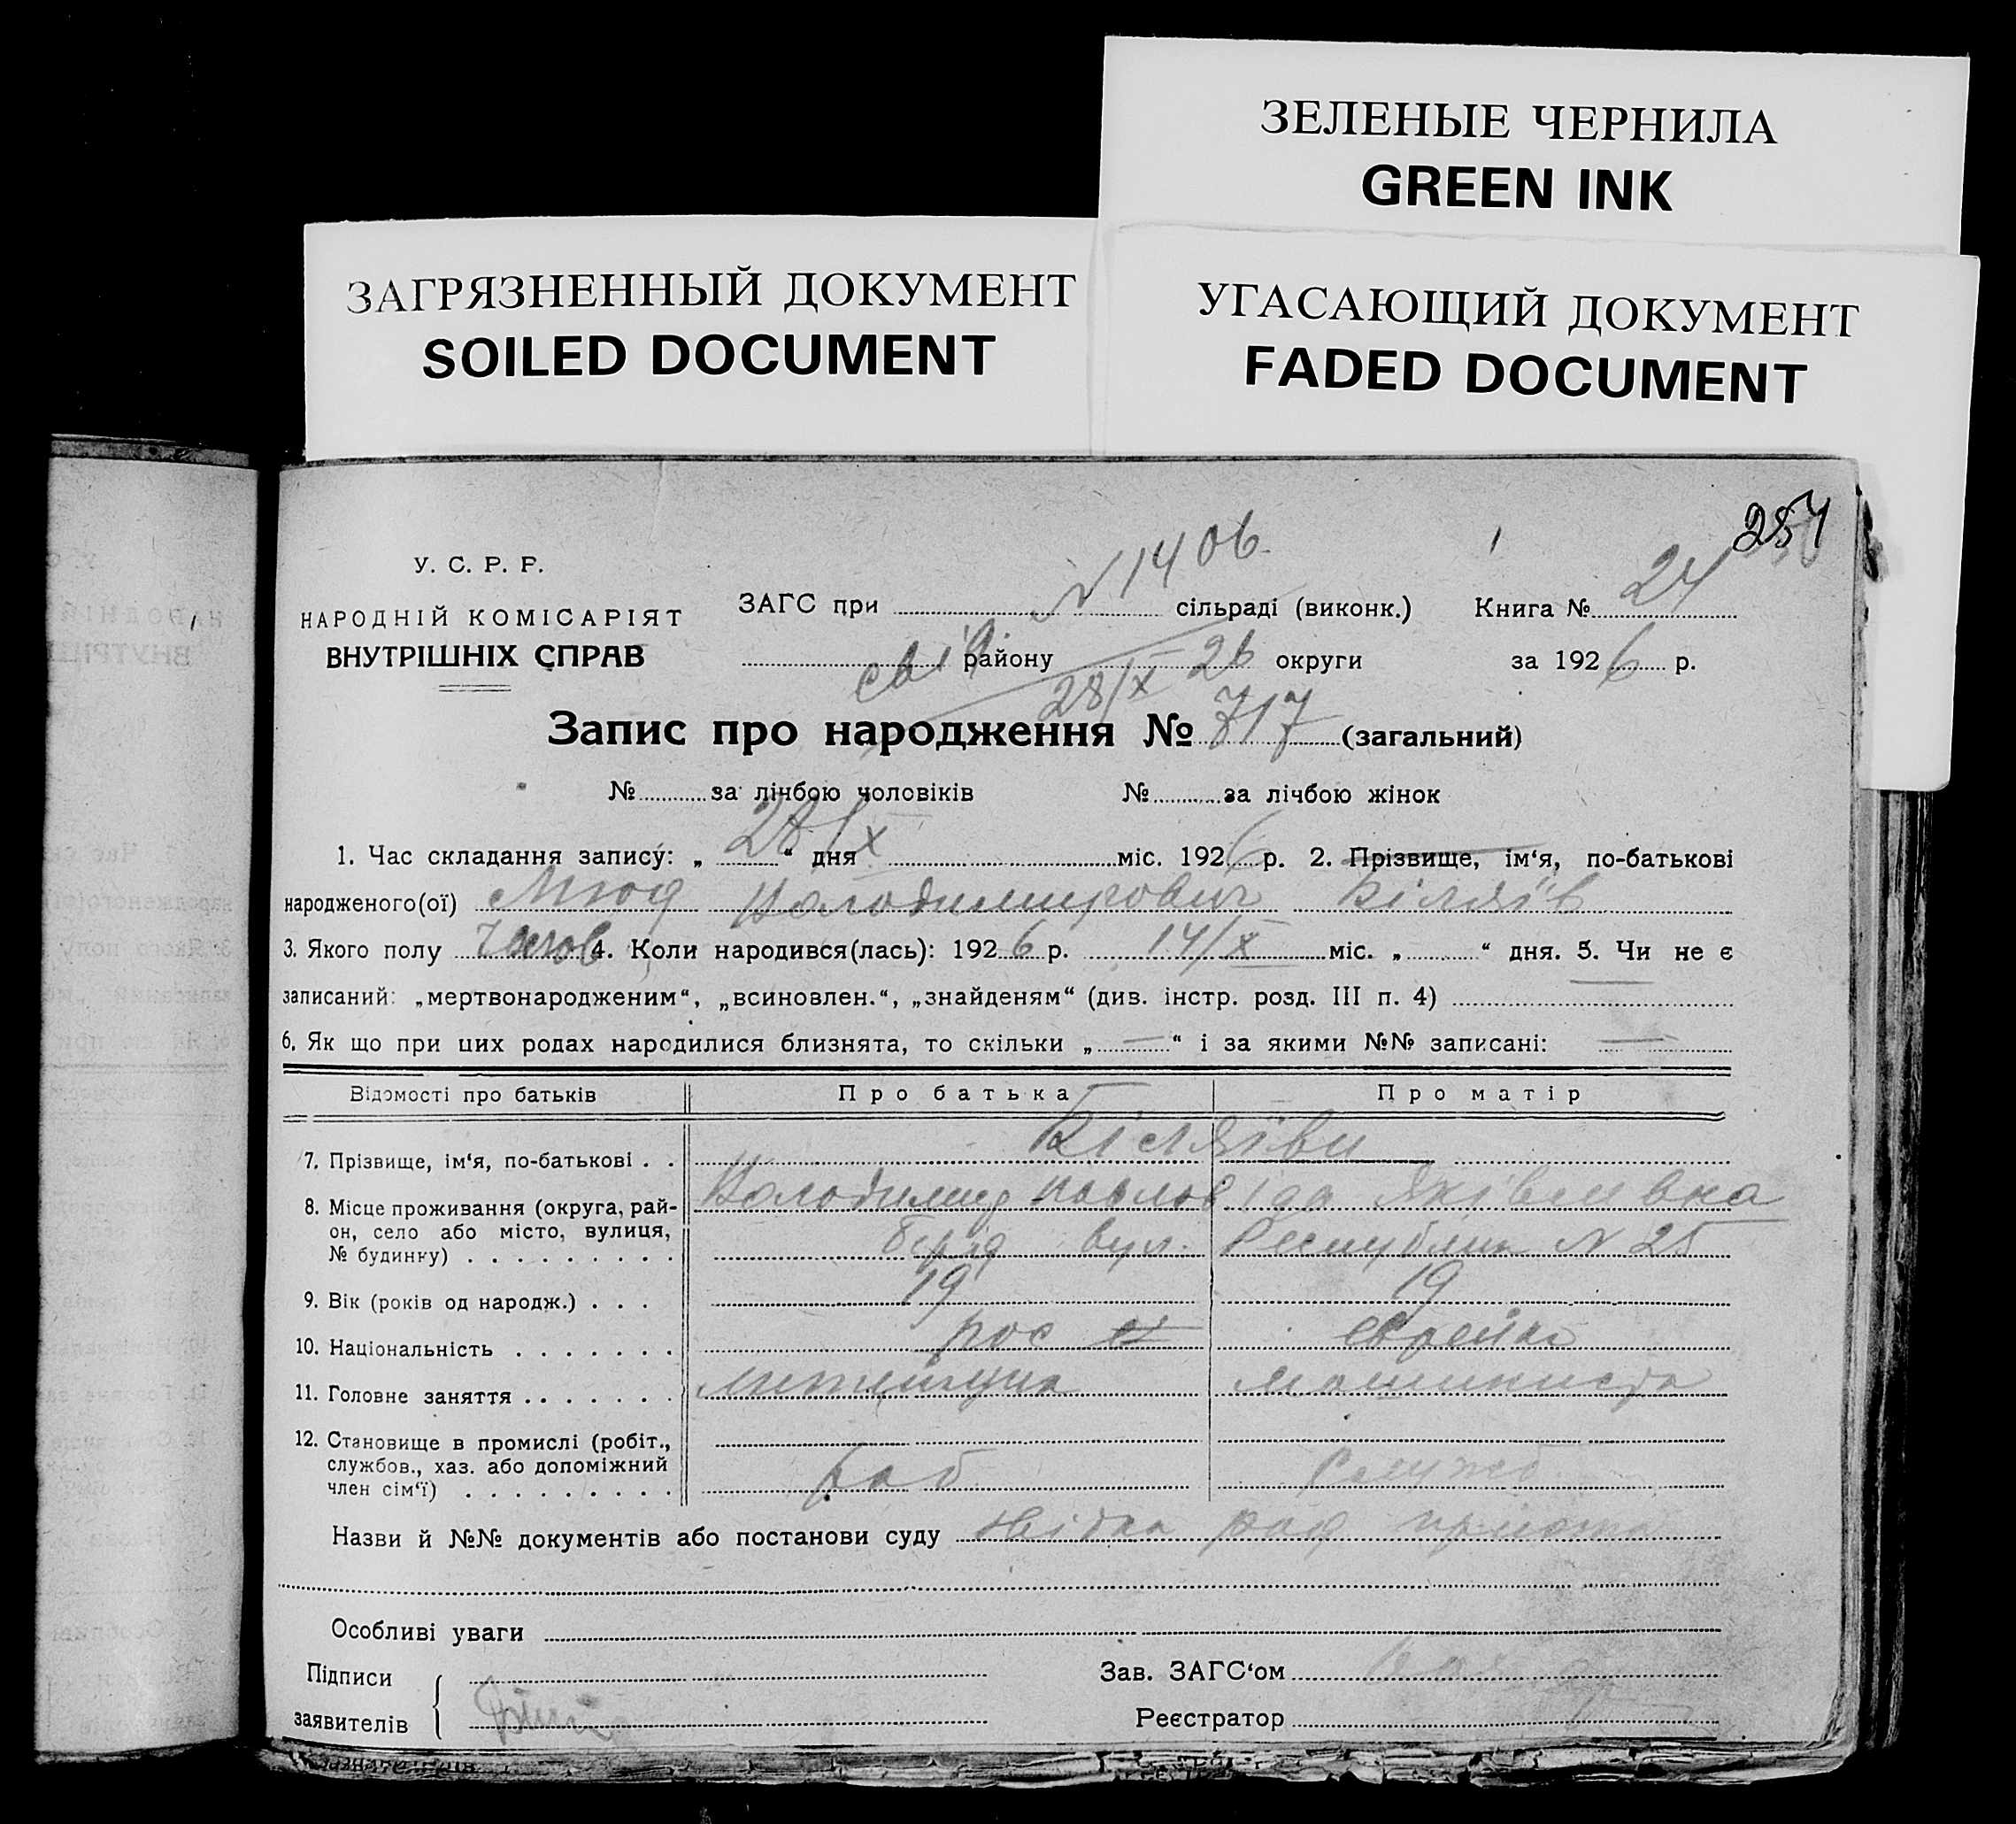 ЗЕЛЕНЫЕ ЧЕРНИЛА
GREEN INK
ЗАГРЯЗНЕННЫЙ ДОКУМЕНТ
SOILED DOCUMENT
УГАСАЮЩИЙ ДОКУМЕНТ
FADED DOCUMENT
257
У. С. Р. Р.
НАРОДНІЙ КОМІСАРІЯТ
ВНУТРІШНІХ СПРАВ
N 1406
ЗАГС при сільраді (виконк.) Книга № 24
району округи за 1926 р.
28/X 26
Запис про народження № 717 (загальний)
№ за лічбою чоловіків № за лічбою жінок
1. Час складання запису: „ 28/X “ дня міс. 1926 р. 2. Прізвище, ім‘я, по-батькові
народженого(ої) Мюд Володимирович Біляїв
3. Якого полу Чолов 4. Коли народився(лась): 1926 р. 14/X міс. „ “ дня. 5. Чи не є
записаний: „мертвонародженим“, „всиновлен.“, „знайденям“ (див. інстр. розд. III п. 4)
6. Як що при цих родах народилися близнята, то скільки „ — “ і за якими №№ записані: —
Відомості про батьків Про батька Про матір
7. Прізвище, ім‘я, по-батькові . . Біляїви
Володимир Павлов Іда Яківливна
8. Місце проживання (округа, рай-
он, село або місто, вулиця,
№ будинку) вул. Республіки N 25
9. Вік (років од народж.) . . . 19 19
10. Національність рос єврейка
11. Головне заняття машинистка
12. Становище в промислі (робіт.,
службов., хаз. або допоміжний
член сім‘ї) раб служб
Назви й №№ документів або постанови суду
Особливі уваги
Підписи Зав. ЗАГС‘ом
заявителів Реєстратор